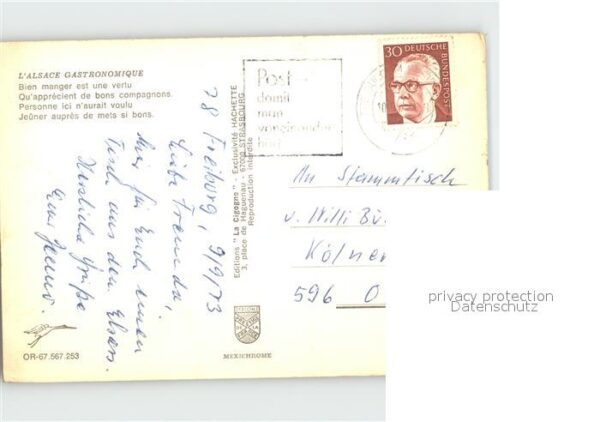 L'ALSACE GASTRONOMIQUE
Bien manger est une vertu
Qu'apprécient de bons compagnons
Personne ici n'aurait voulu
Jeûner auprès de mets si bons.
78 Freiburg, 9/9/73
Liebe Freunde,
Hier für Euch einen
Tisch aus dem Elsass.
Herzliche Grüße
Euer
OR-67.567.253
Editions "La Cigogne" - Exclusivité HACHETTE
3, place de Haguenau - 67000 STRASBOURG
Reproduction interdite
MEXICHROME
Post-
damit
man
voneinander
hört
30 DEUTSCHE
BUNDESPOST
An Stammtisch
v. Willi Bü
Kölner
596 O
privacy protection
Datenschutz